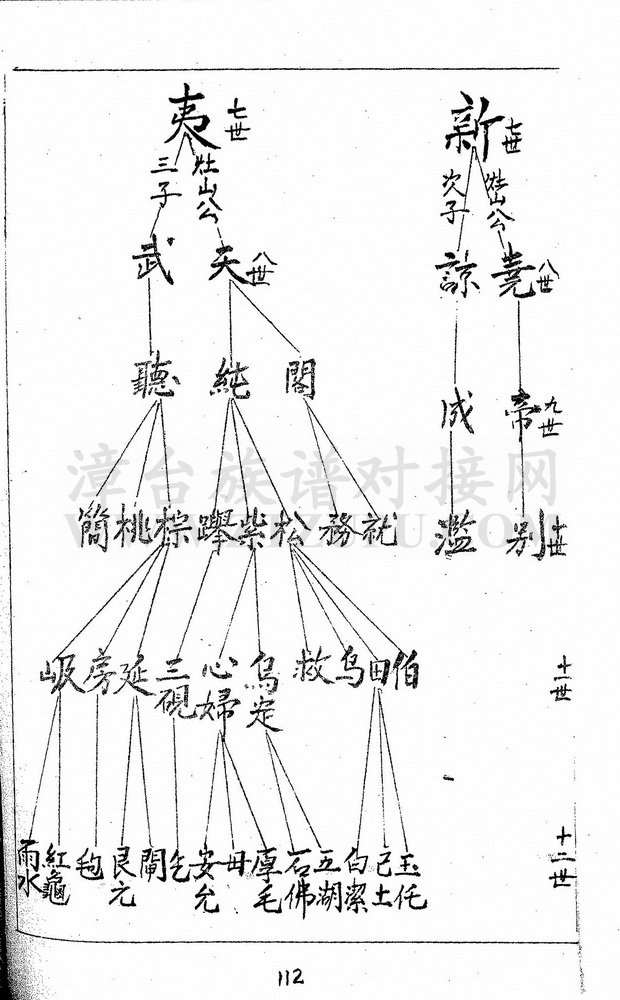 新 七世
㷍山公 次子
堯 諒 八世
帝 成 九世
别 濫 十世
十一世
十二世
夷 七世
灶山公 三子
天 武 八世
閣 純 聽
就 務 松 柴 踭 棕 桃 簡
伯 田 鳥 救 烏定 心婦 三硯 延 房 岋
玉仛 己土 白潔 五湖 石佛 厚毛 毌 安允 乞 閘 艮元 皰 紅龜 雨水
漳台族谱对接网
112